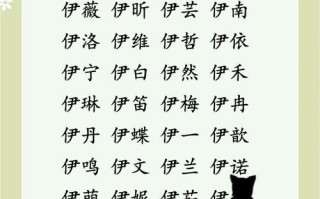 伊薇 伊昕 伊芸 伊南
伊洛 伊维 伊哲 伊依
伊宁 伊白 伊然 伊禾
伊琳 伊笛 伊梅 伊冉
伊丹 伊蝶 伊一 伊歆
伊鸣 伊文 伊兰 伊诺
伊萌 伊妮 伊茹 伊